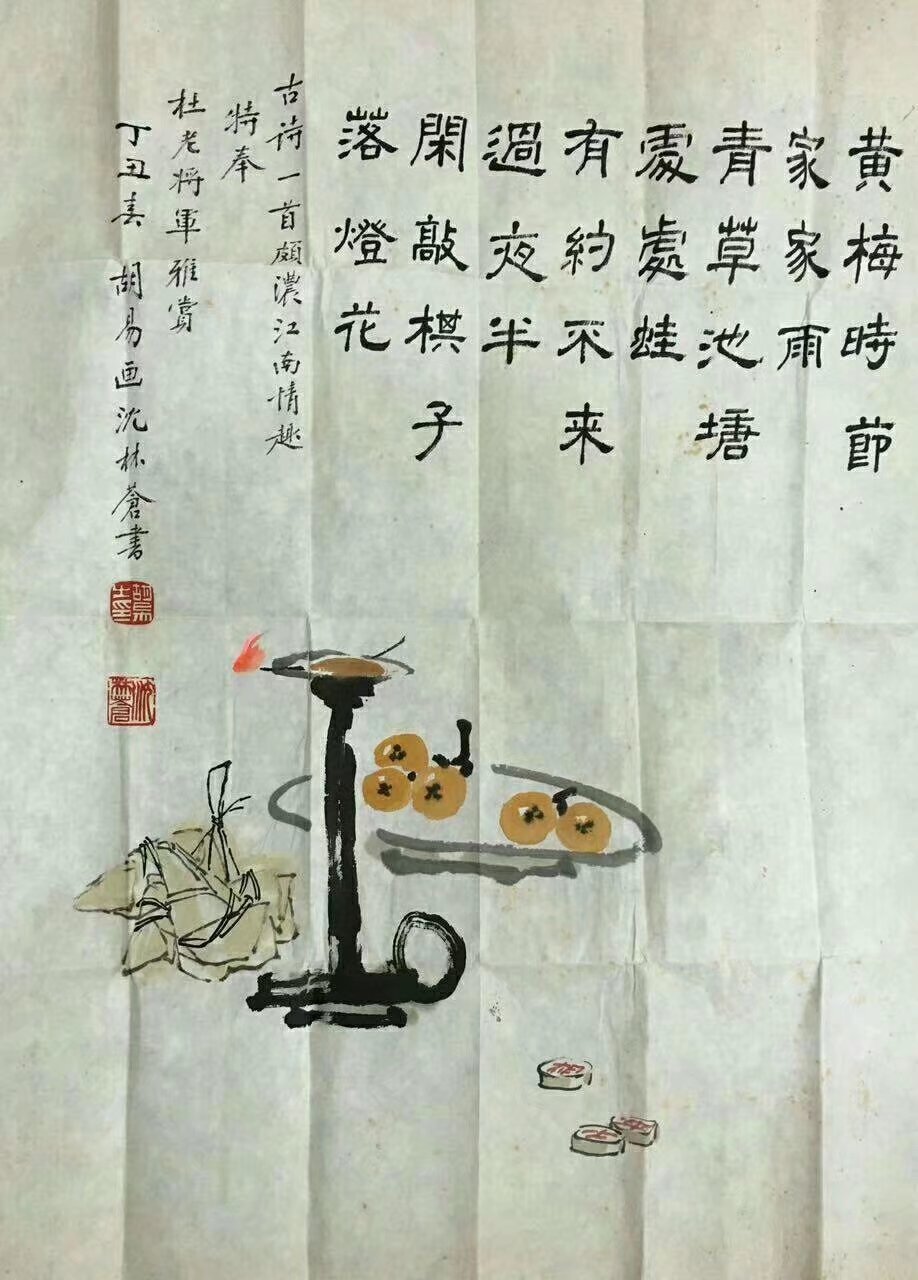 黄梅時節
家家雨
青草池塘
處處蛙
有約不来
過夜半
閑敲棋子
落燈花
古诗一首頗濃江南情趣
特奉
杜老将軍雅賞
丁丑春 胡易画沈林蒼書